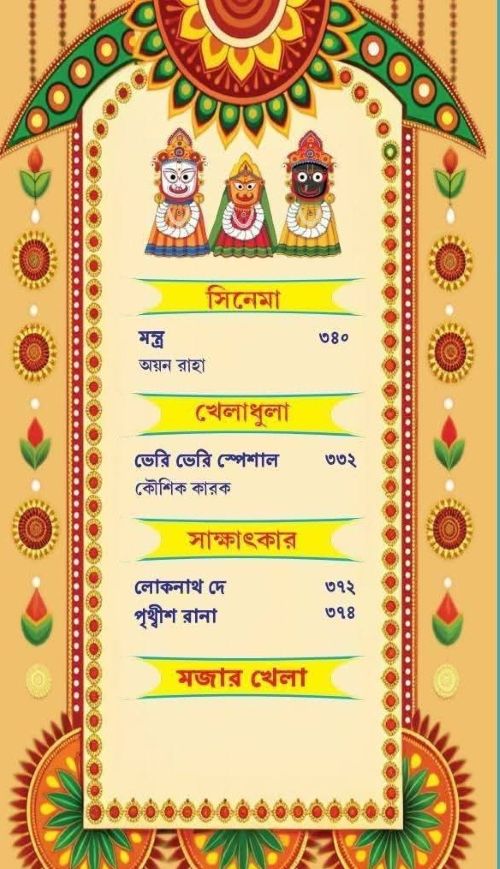 সিনেমা
মন্ত্র ৩৪০
অয়ন রাহা
খেলাধুলা
ভেরি ভেরি স্পেশাল ৩৩২
কৌশিক কারক
সাক্ষাৎকার
লোকনাথ দে ৩৭২
পৃথ্বীশ রানা ৩৭৪
মজার খেলা